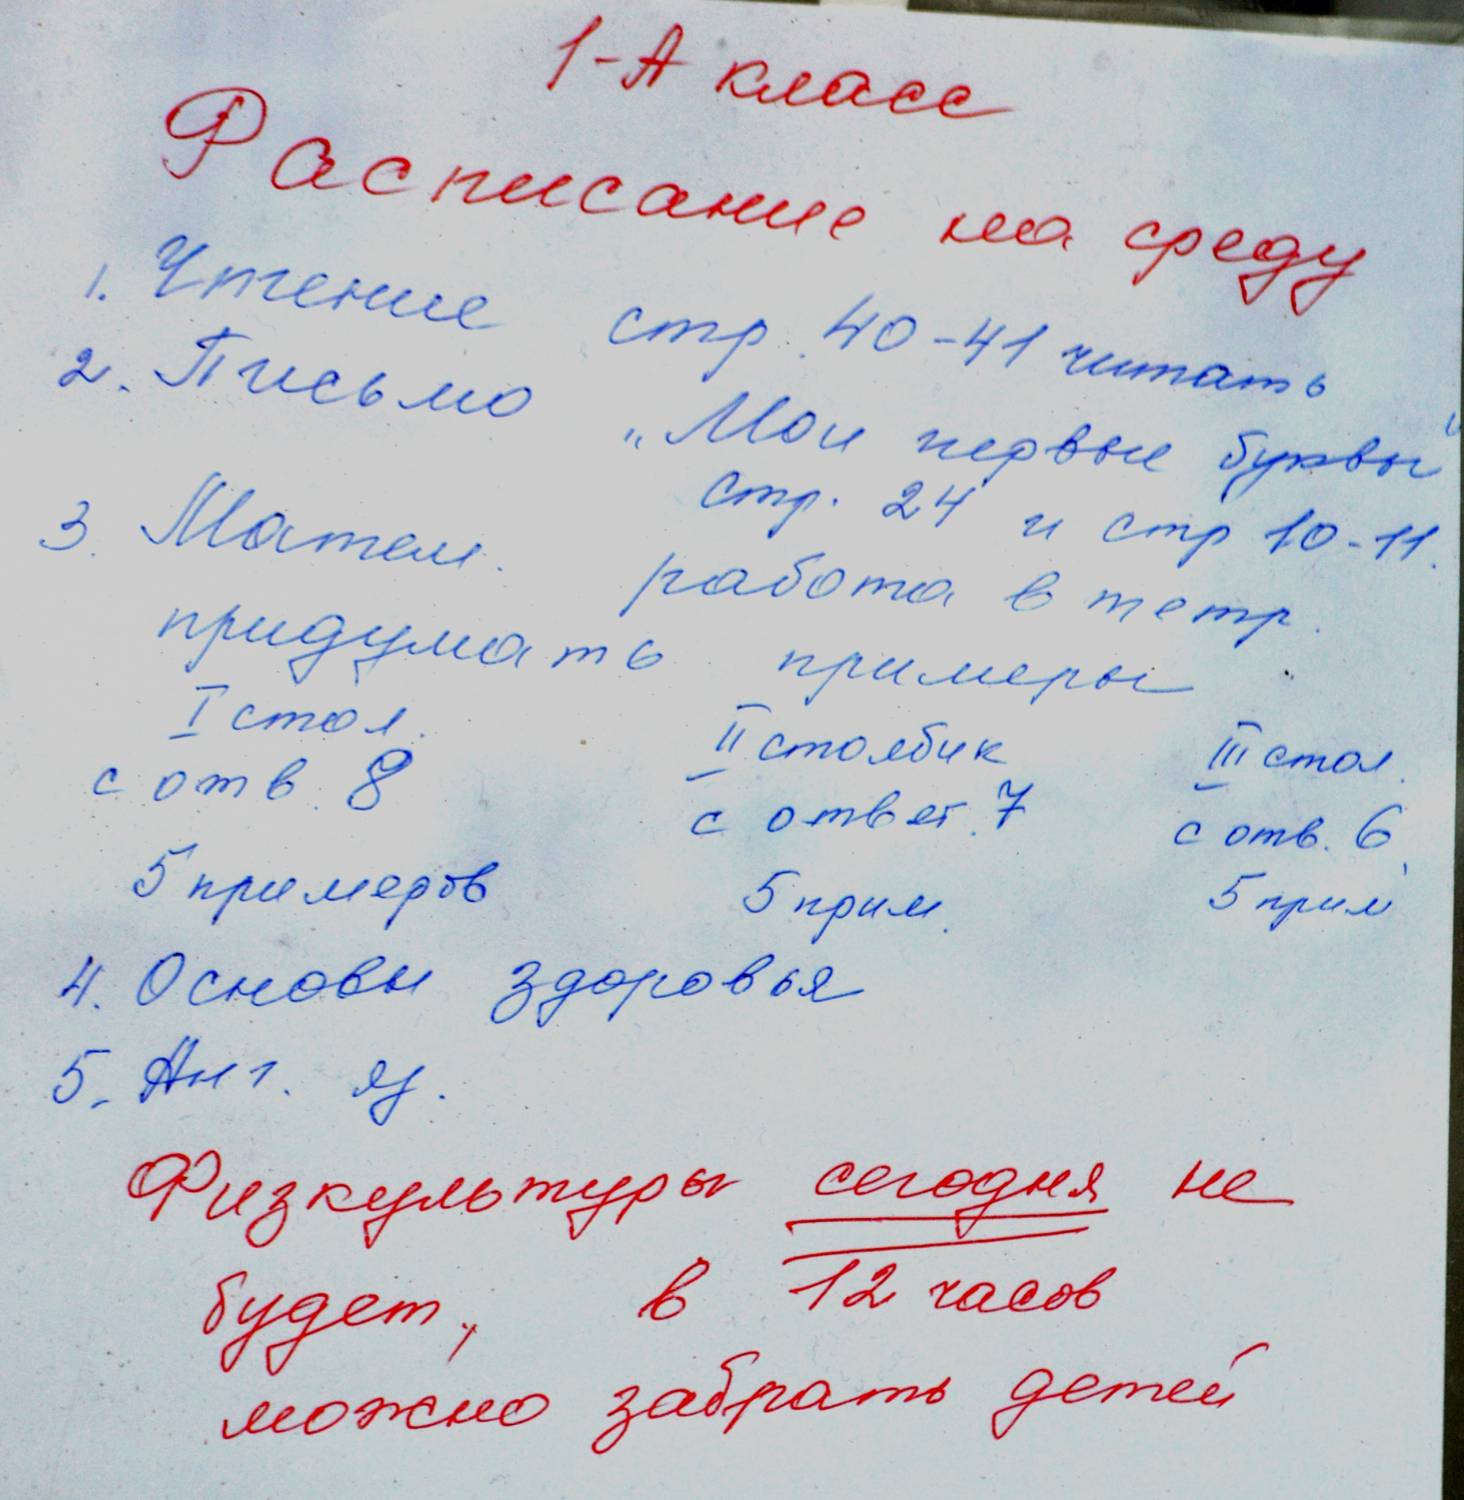 1-А класс
Расписание на среду
1. Чтение стр. 40-41 читать
2. Письмо „Мои первые буквы"
стр. 24 и стр 10-11.
3. Матем. работа в тетр.
придумать примеры
I стол. II столбик III стол.
с отв. 8 с ответ. 7 с отв. 6
5 примеров 5 прим. 5 прим
4. Основы здоровья
5. Анг. яз.
Физкультуры сегодня не
будет, в 12 часов
можно забрать детей